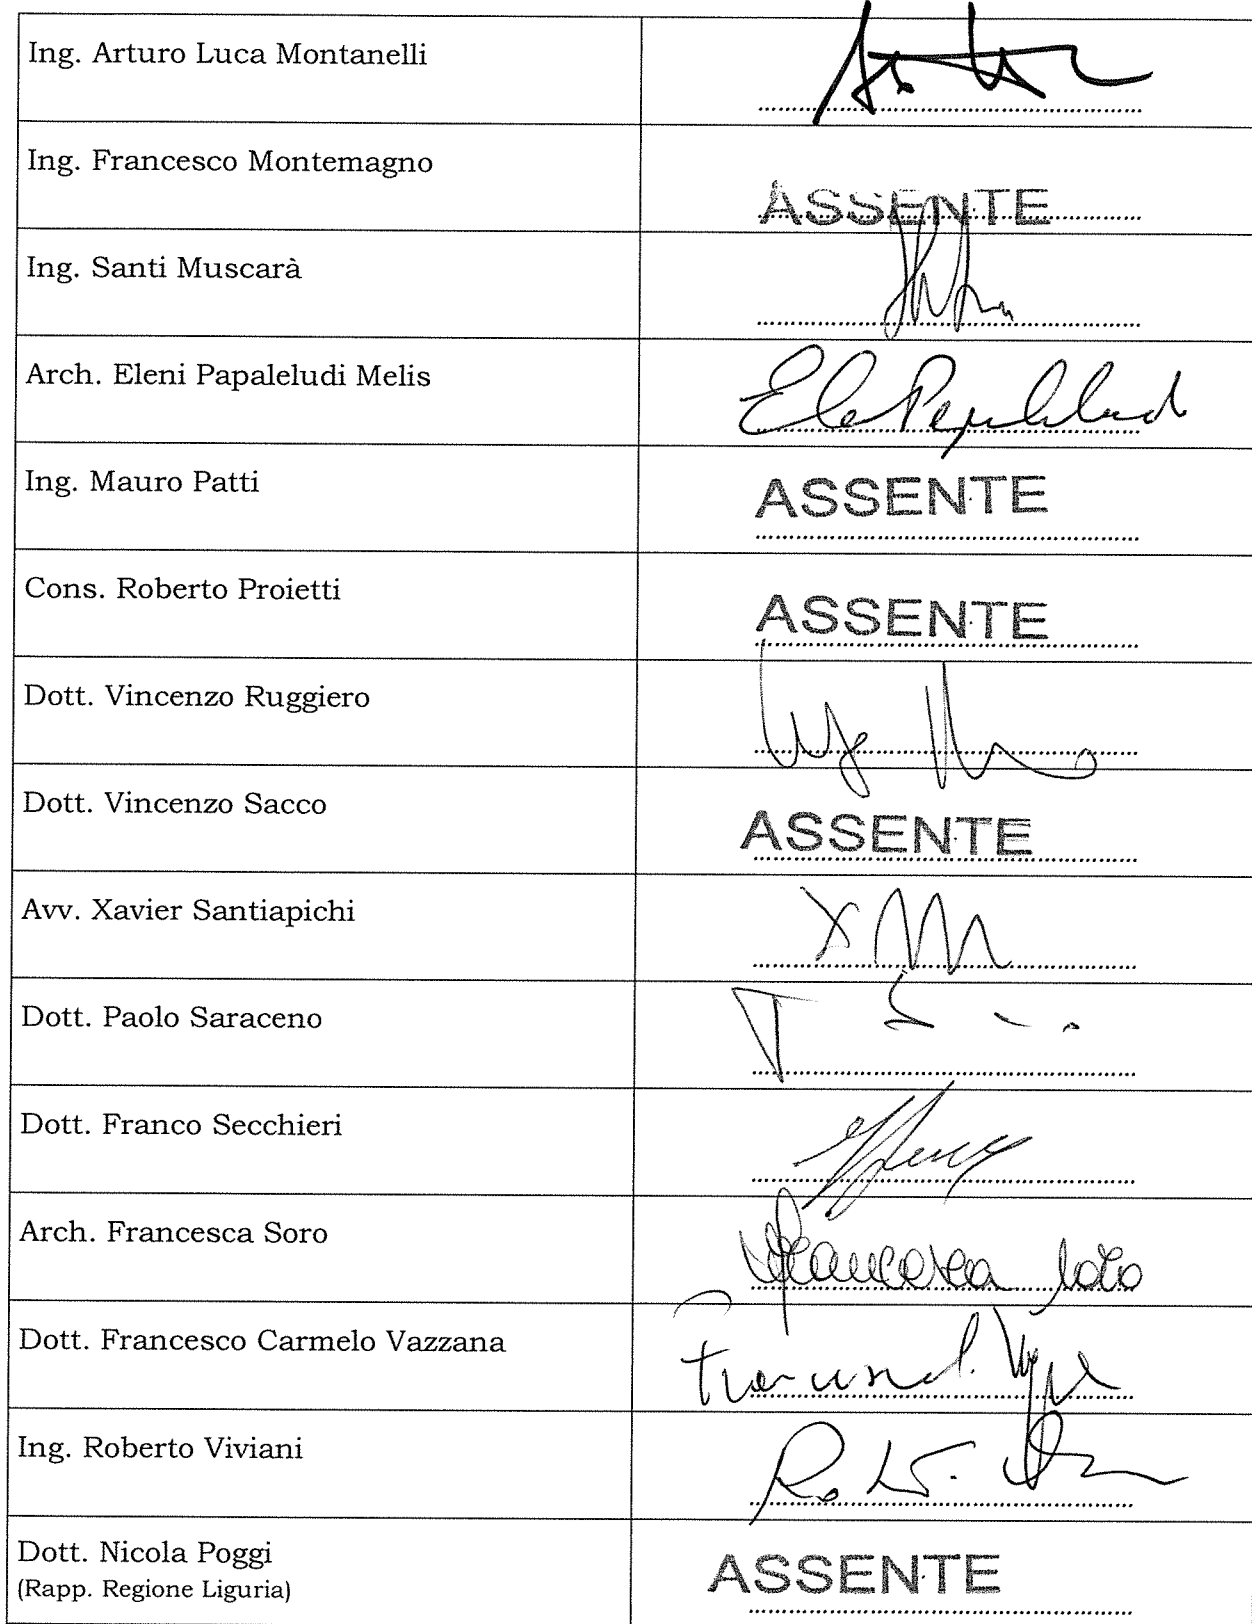 Ing. Arturo Luca Montanelli
Ing. Francesco Montemagno
ASSENTE
Ing. Santi Muscarà
Arch. Eleni Papaleludi Melis
Ing. Mauro Patti
ASSENTE
Cons. Roberto Proietti
ASSENTE
Dott. Vincenzo Ruggiero
Dott. Vincenzo Sacco
ASSENTE
Avv. Xavier Santiapichi
Dott. Paolo Saraceno
Dott. Franco Secchieri
Arch. Francesca Soro
Francesca Soro
Dott. Francesco Carmelo Vazzana
Ing. Roberto Viviani
Dott. Nicola Poggi
ASSENTE
(Rapp. Regione Liguria)